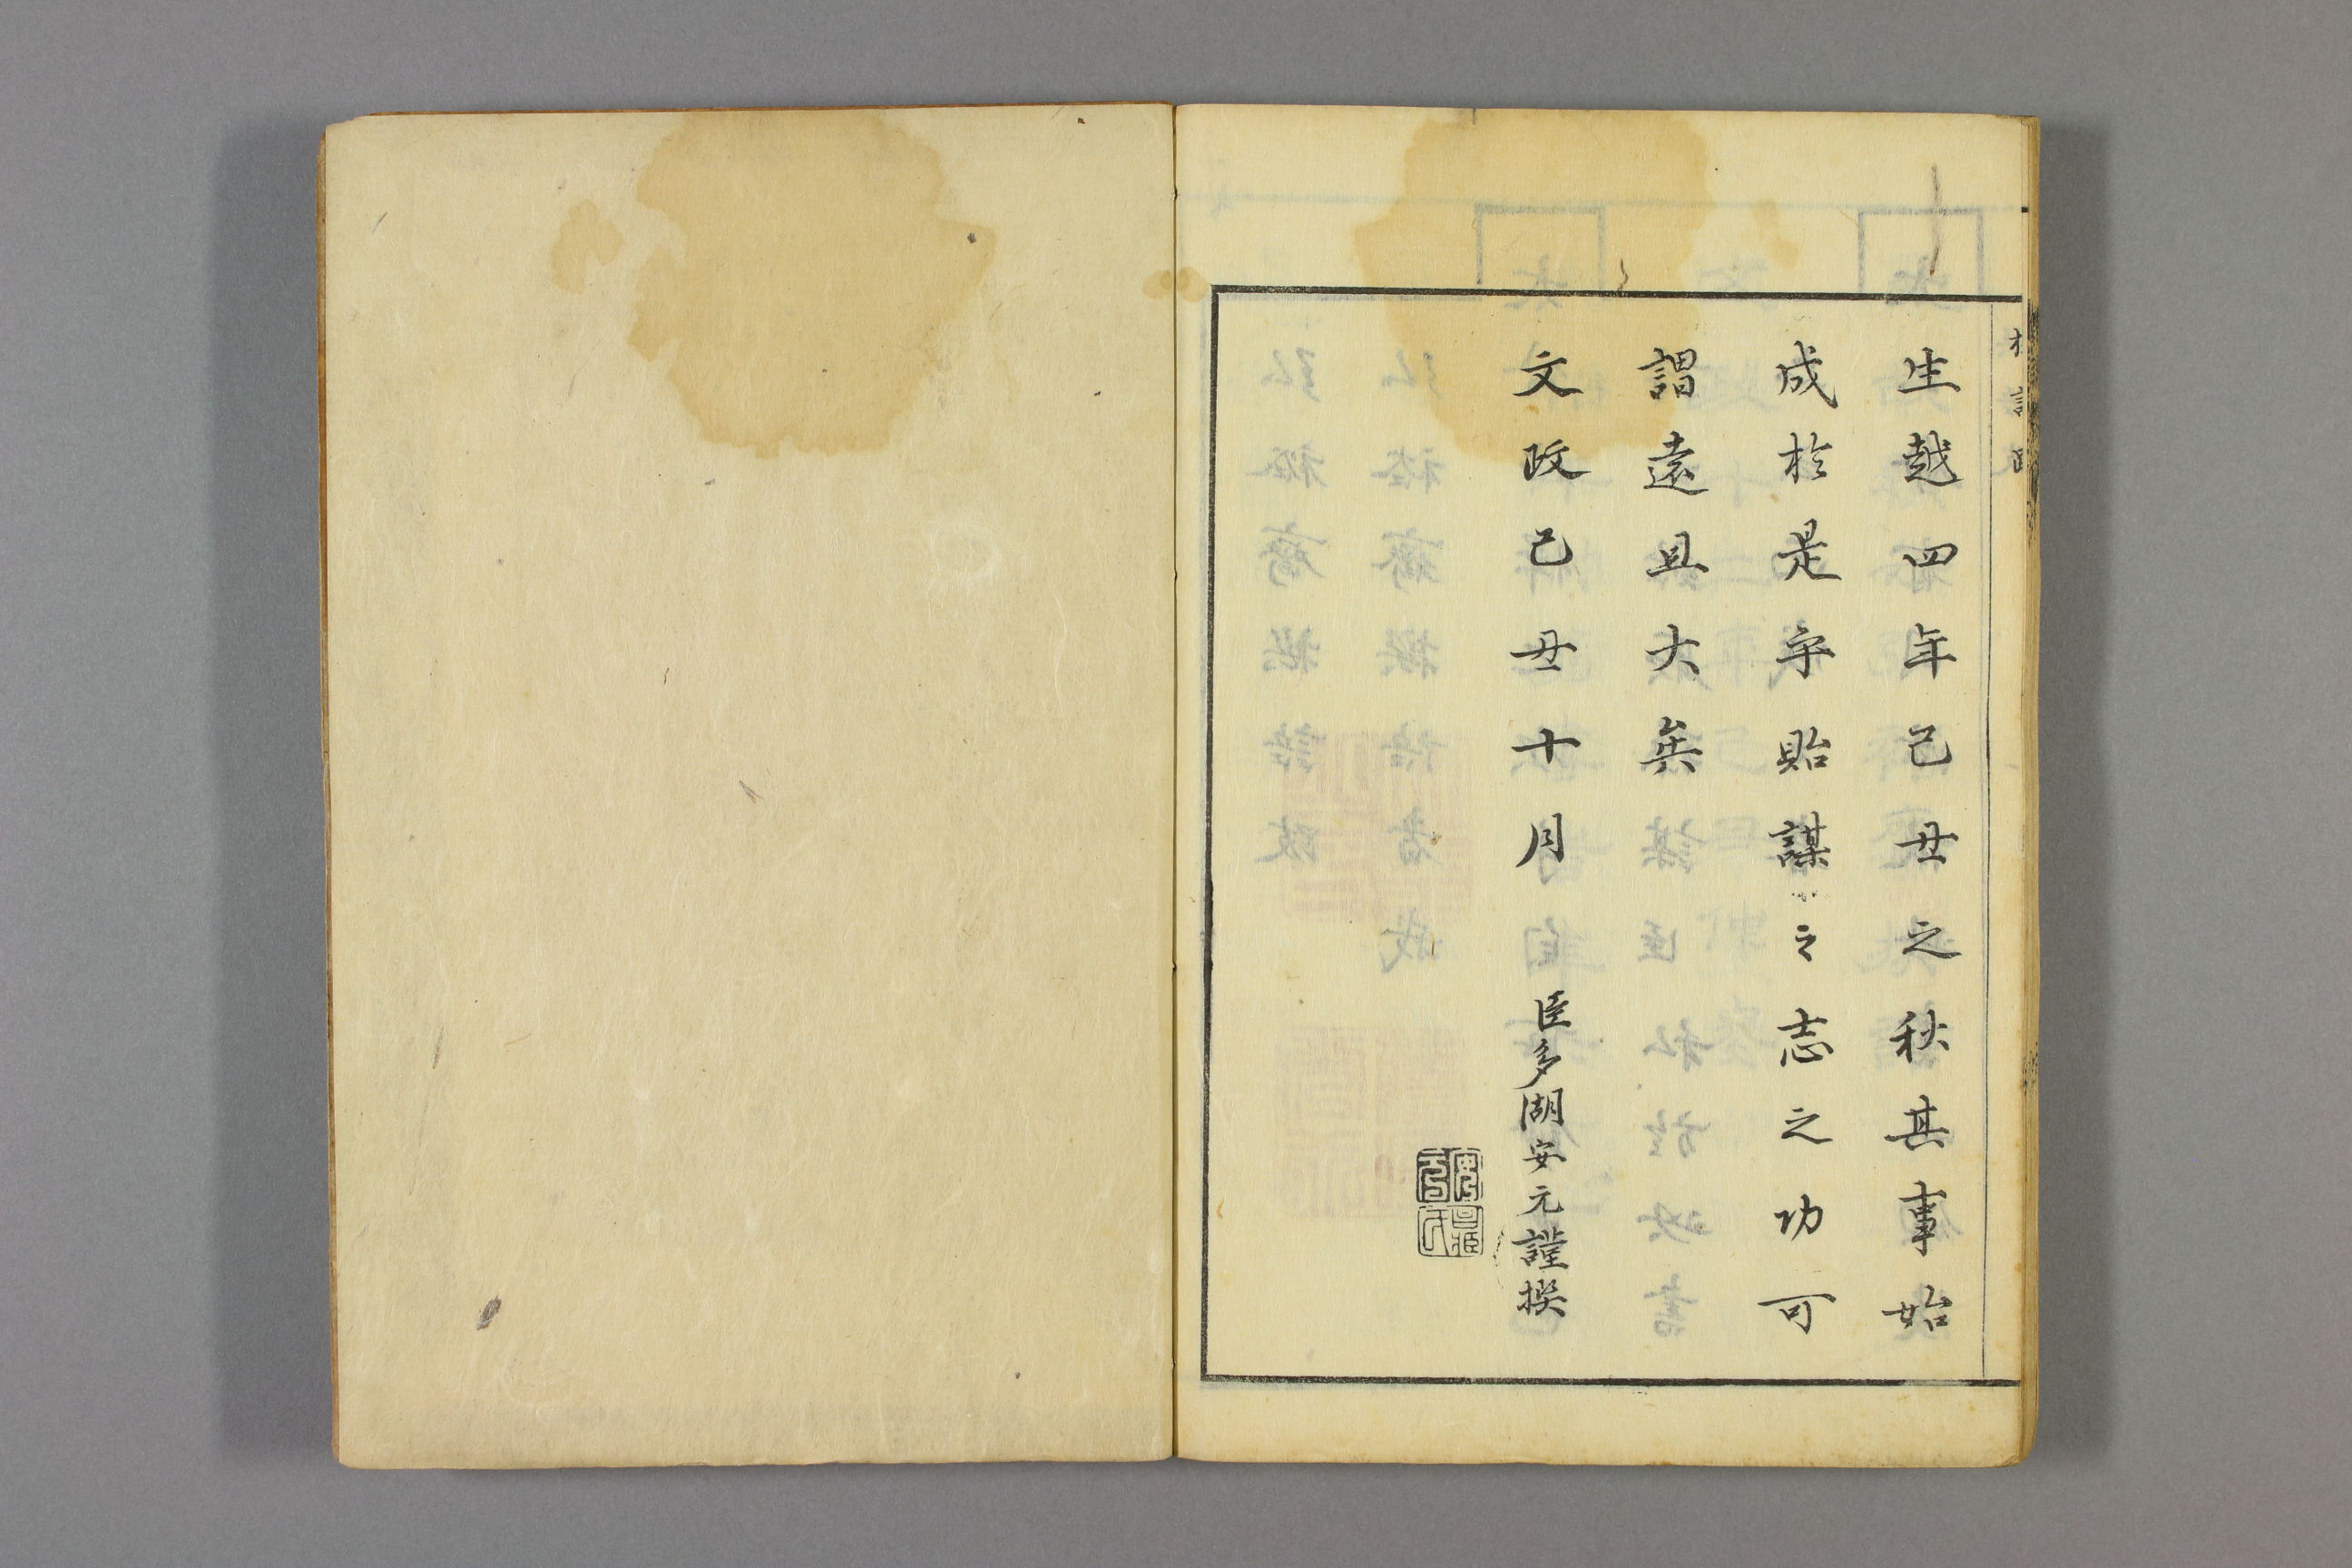 生越四年己丑之秋其事始
成於是乎貽謀之志之功可
謂遠且大矣
文政己丑十月 臣多湖安元謹撰